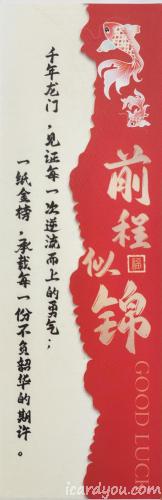 前程
似
锦
GOOD LUCK
千年龙门，见证每一次逆流而上的勇气；
一纸金榜，承载每一份不负韶华的期许。
icardyou.com